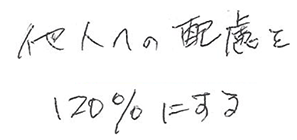 他人への配慮を
120%にする